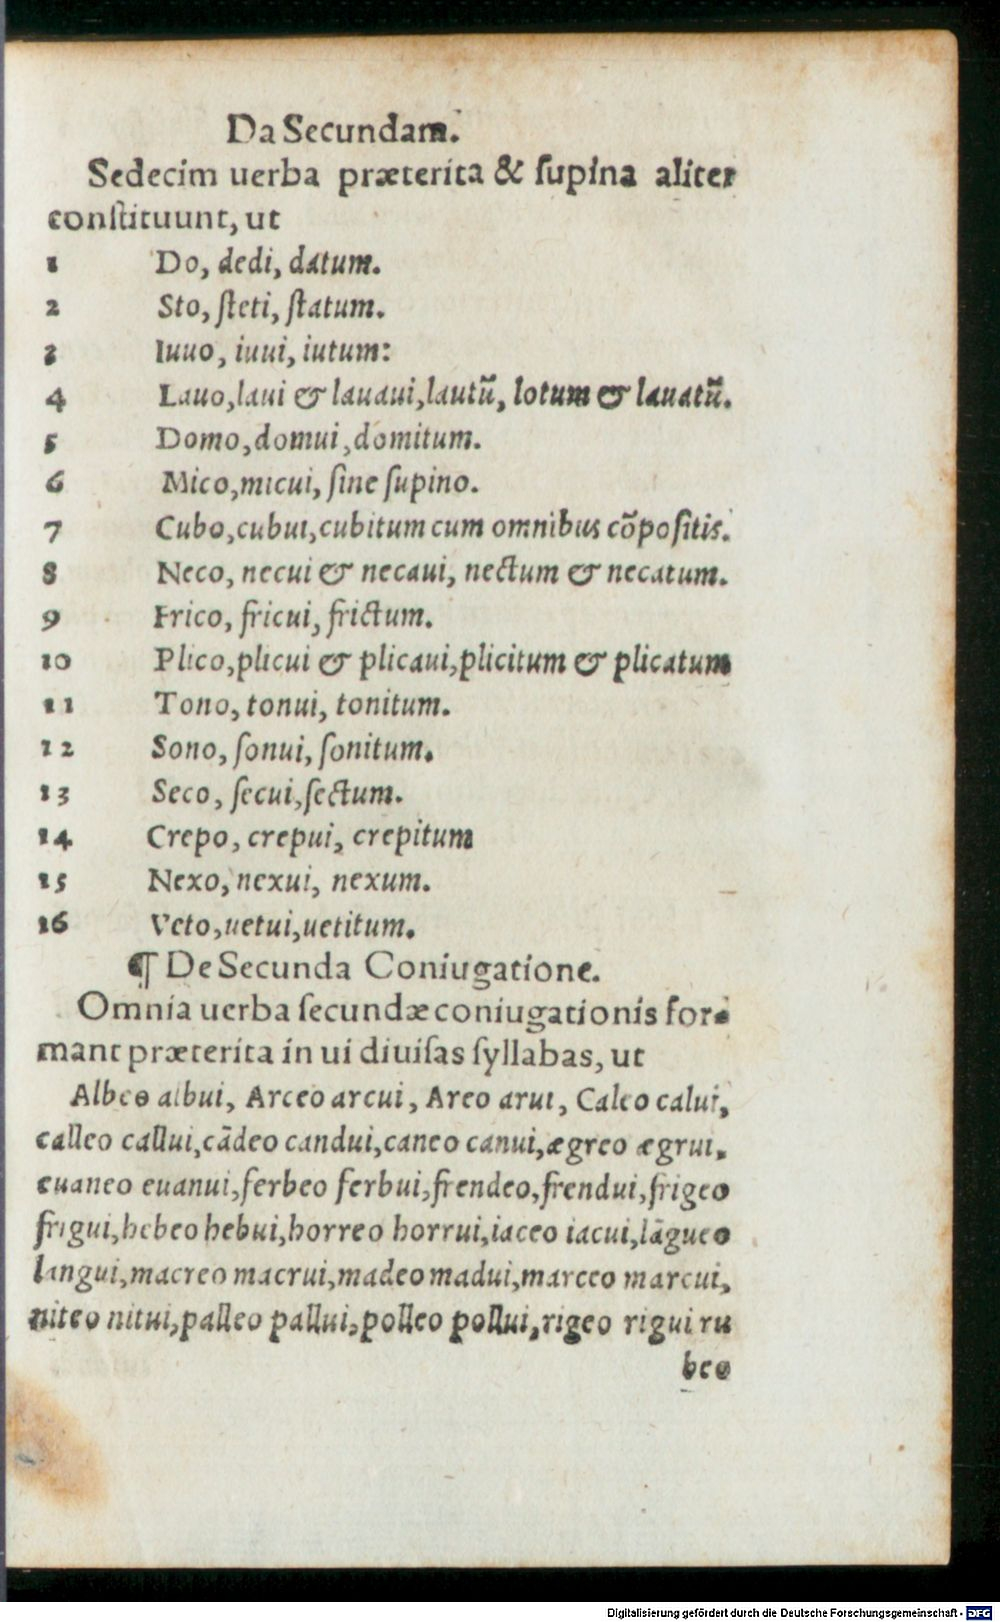 Da Secundam.
Sedecim uerba præterita & ſupina aliter
conſtituunt, ut
1 Do, dedi, datum.
2 Sto, ſteti, ſtatum.
3 Iuuo, iuui, iutum:
4 Lauo, laui & lauaui, lautū, lotum & lauatū.
5 Domo, domui, domitum.
6 Mico, micui, ſine ſupino.
7 Cubo, cubui, cubitum cum omnibus cōpoſitis.
8 Neco, necui & necaui, nectum & necatum.
9 Frico, fricui, frictum.
10 Plico, plicui & plicaui, plicitum & plicatum
11 Tono, tonui, tonitum.
12 Sono, ſonui, ſonitum.
13 Seco, ſecui, ſectum.
14 Crepo, crepui, crepitum
15 Nexo, nexui, nexum.
16 Veto, uetui, uetitum.
¶ De Secunda Coniugatione.
Omnia uerba ſecundæ coniugationis for-
mant præterita in ui diuiſas ſyllabas, ut
Albeo albui, Arceo arcui, Areo arui, Caleo calui,
calleo callui, cādeo candui, caneo canui, ægreo ægrui,
euaneo euanui, ferbeo ferbui, frendeo, frendui, frigeo
frigui, hebeo hebui, horreo horrui, iaceo iacui, lāgueo
langui, macreo macrui, madeo madui, marceo marcui,
niteo nitui, palleo pallui, polleo pollui, rigeo rigui ru
beo
Digitalisierung gefördert durch die Deutsche Forschungsgemeinschaft - DFG